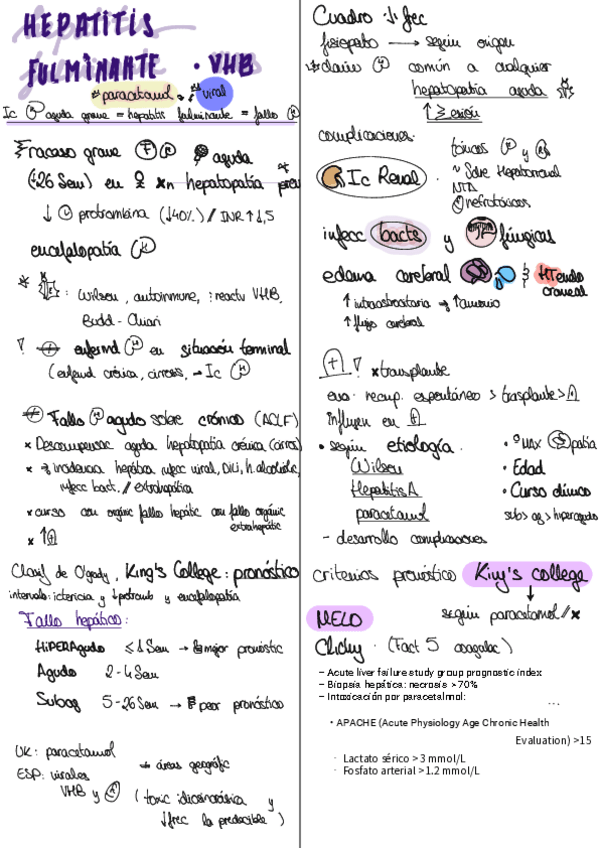 HEPATITIS
FULMINANTE · VHB
paracetamol viral
Ic H aguda grave = hepatitis fulminante = fallo H
Fracaso grave F H aguda
(<26 Sem) en xn hepatopatía
↓ protrombina (↓40%) // INR ↑1,5
encefalopatía H
* : Wilson, autoinmune, reactv VHB,
Budd-Chiari
enfermd H en situación terminal
(enfermd crónica, cirrosis, → Ic H
Fallo H agudo sobre crónico (ACLF)
× Descompensac aguda hepatopatía crónica (cirros
× incidencia hepática infecc viral, DILI, h. alcohólic,
infecc bact. // extrahepática
× curso con orgánic fallos hepátic con fallo orgánic
extrahepátic
× ↑
Clasif de O'grady, King's College: pronóstico
intervalo: ictericia y ↓protromb y encefalopatía
Fallo hepático:
HiPERAgudo ≤1 Sem → mejor pronóstic
Agudo 2-4 Sem
Subag 5-26 Sem → peor pronóstico
UK: paracetamol
→ áreas geográfic
ESP: virales
VHB y A (toxic idiosincrásica y
↓frec la predecible)
Cuadro ↓ frec
fisiopato → según origen
común a cualquier
hepatopatía aguda
complicaciones:
Ic Renal · tóxicos H y R
~ Sdre Hepatorrenal
NTA
nefrotóxicos
infecc bacts y fúngicas
edema cerebral y HTendo
craneal
↑ intraastrocitaria → ↑amonio
↑ flujo cerebral
! × transplante
eva. recup. espontánea > trasplante >
influyen en
• según etiología
Wilson
Hepatitis A
paracetamol
• º MAX patía
• Edad
• Curso clínico
subag > ag > hiperagudo
- desarrollo complicaciones
criterios pronóstico King's college
según paracetamol // x
MELD
Clichy · (Fact 5 coagulac)
– Acute liver failure study group prognostic index
– Biopsia hepática: necrosis >70%
– Intoxicación por paracetalmol:
...
• APACHE (Acute Physiology Age Chronic Health
Evaluation) >15
· Lactato sérico > 3 mmol/L
· Fosfato arterial > 1.2 mmol/L